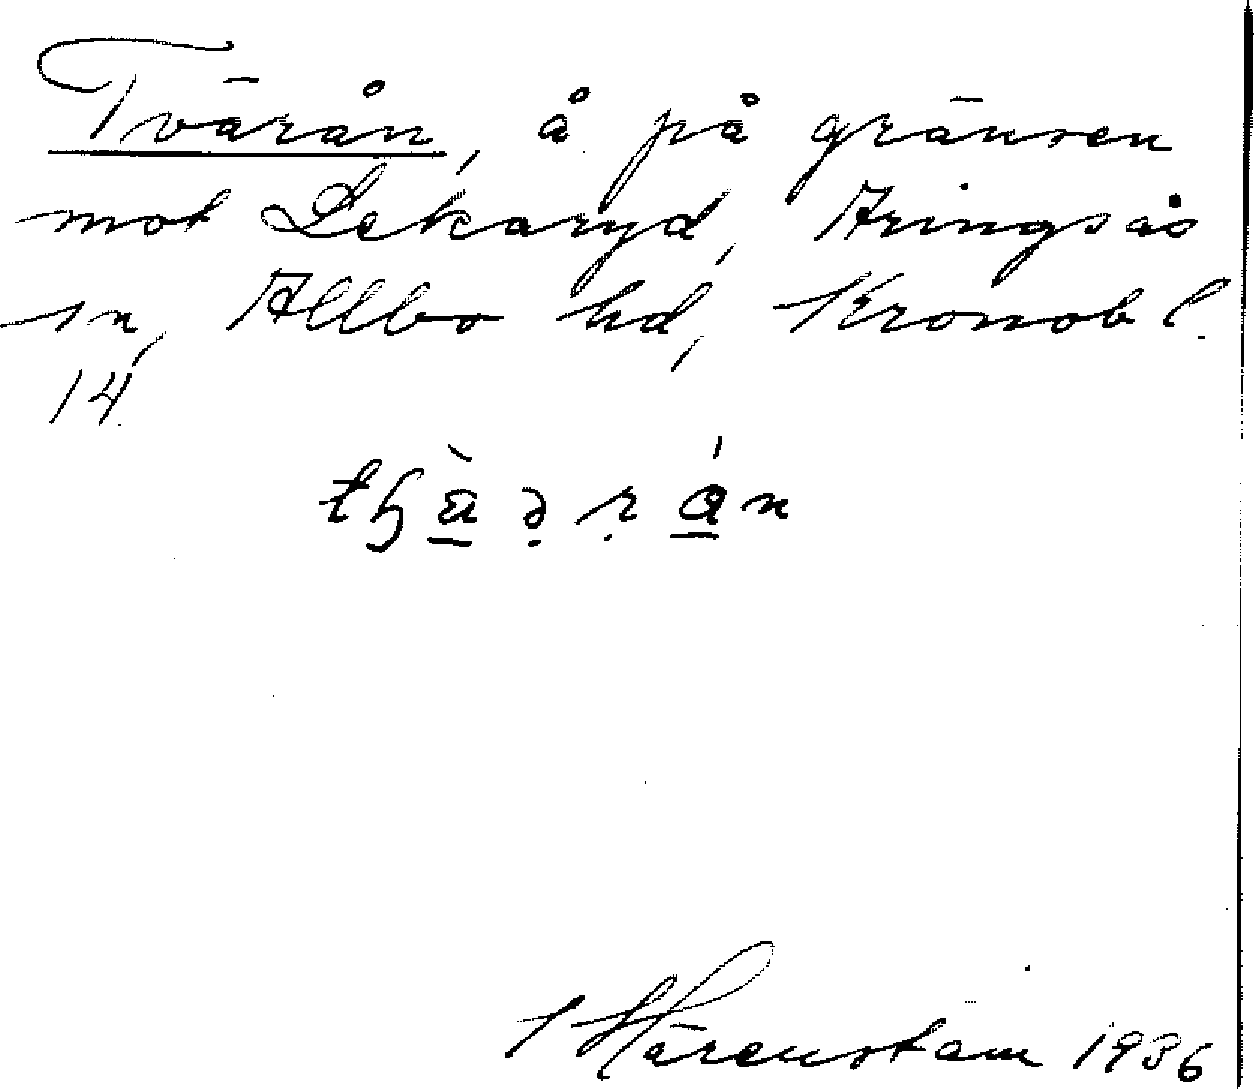 Tvärån, å på gränsen
mot Lekaryd, Aringsås
sn, Allbo hd, Kronob l.
14.
Härenstam 1936